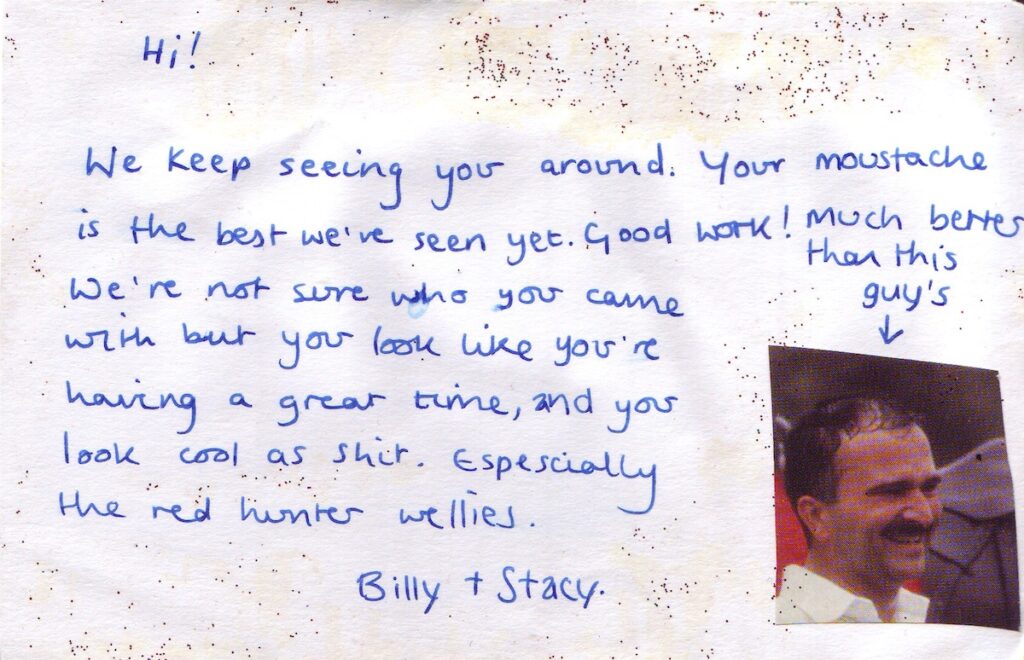 Hi!
We keep seeing you around. Your moustache
is the best we've seen yet. Good work! Much better
than this
guy's
We're not sure who you came
with but you look like you're
having a great time, and you
look cool as shit. Espescially
the red hunter wellies.
Billy + Stacy.